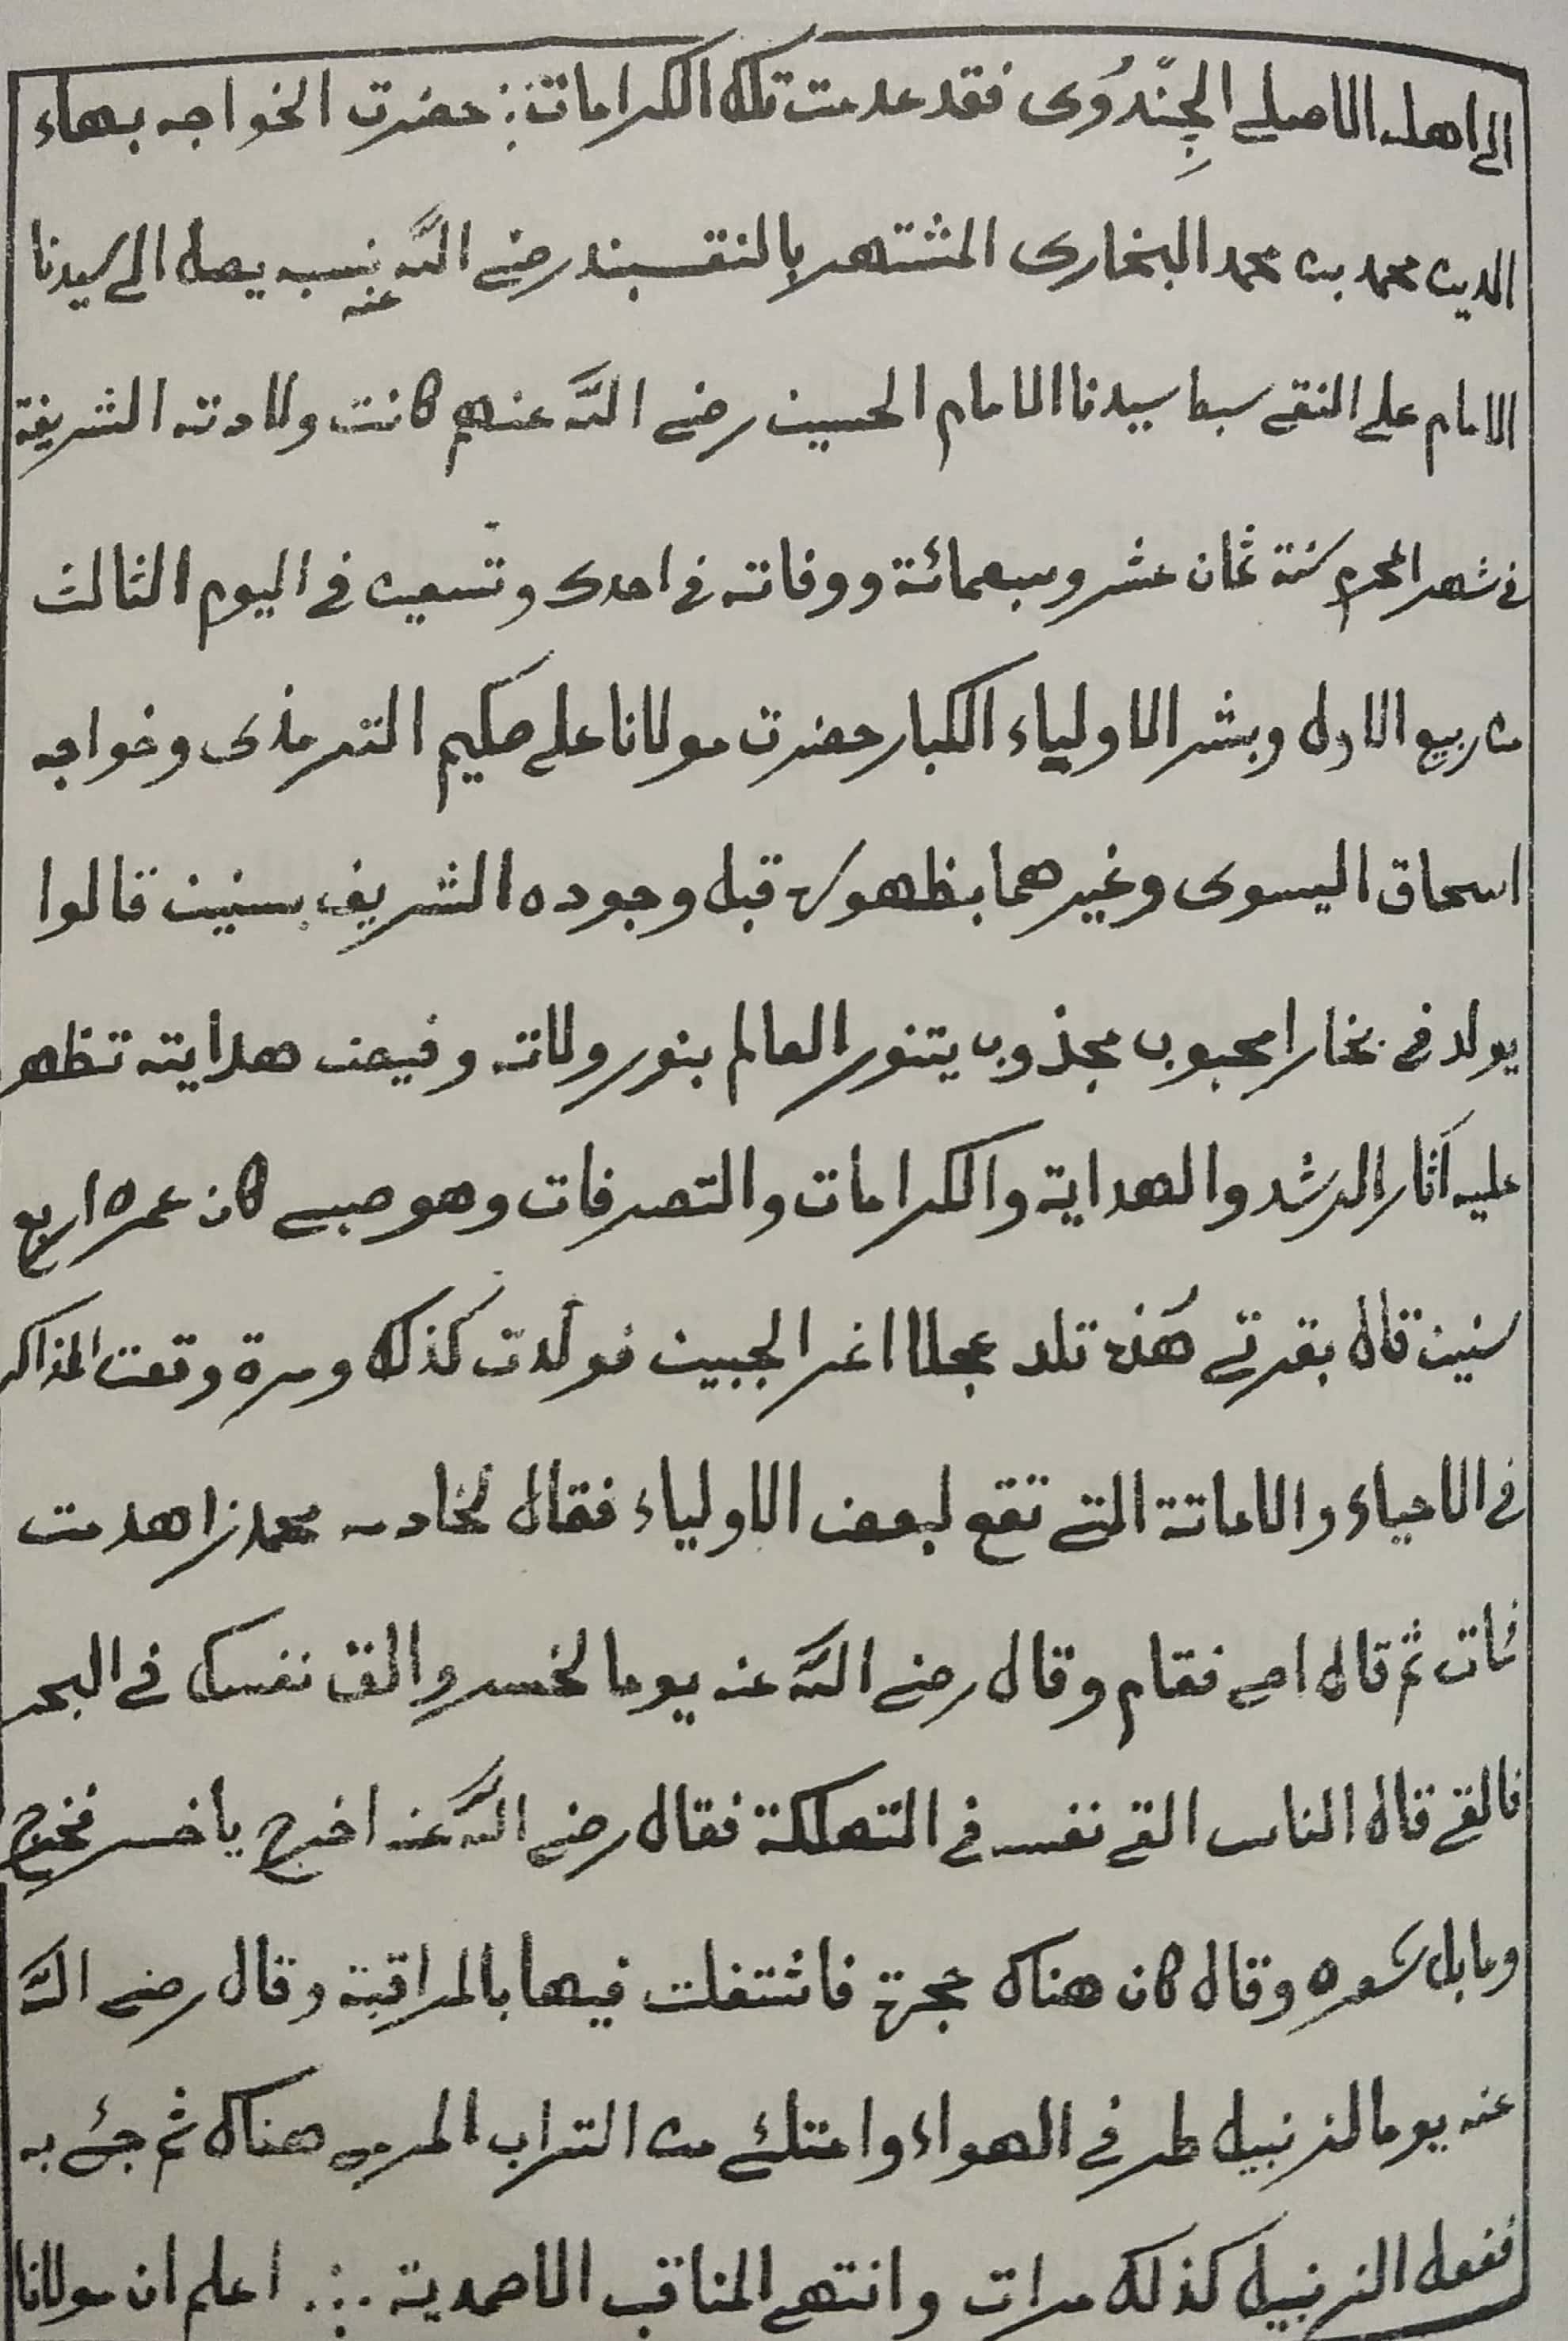 الى اهله الاصلي الجِنّدُوى فقد عدمت تلك الكرامات ∴ حضرت الخواجه بهاء
الدين محمد بن محمد البخارى المشتهر بالنقسبند رضى اللّه عنه نسبه يصل الى سيدنا
الامام على النقى سبط سيدنا الامام الحسين رضى اللّه عنهم كانت ولادته الشريفة
فى شهر المحرم سنة ثمان عشر وسبعمائة ووفاته فى احدى وتسعين فى اليوم الثالث
من ربيع الاول وبشر الاولياء الكبار حضرت مولانا على حكيم الترمذى وخواجه
اسحاق اليسوى وغيرهما بظهوره قبل وجوده الشريف بسنين قالوا
يولد فى بخارا محبوب مجذوب يتنور العالم بنور ولاته وفيض هدايته تظهر
عليه آثار الرشد والهداية والكرامات والتصرفات وهو صبى كان عمره اربع
سنين قال بقرتى هٰذه تلد عجلا اغر الجبين فولدت كذلك ومرة وقعت المذاكر
فى الاحياء والاماتة التى تقع لبعض الاولياء فقال لخادمه محمد زاهد مت
فمات ثم قال احى فقام وقال رضى اللّه عنه يوما لخسرو الق نفسك فى البحر
فالقى قال الناس القى نفسه فى التهلكة فقال رضى اللّه عنه اخرج يا خسر فخرج
وما بل شعره وقال كان هناك حجرة فاشتغلت فيها بالمراقبة وقال رضى اللّه
عنه يوما لزنبيل طر فى الهواء وامتلئ من التراب المرمى هناك ثم جئ به
ففعل الزنبيل كذلك مرات وانتهى المناقب الاحمدية ∴ اعلم ان مولانا